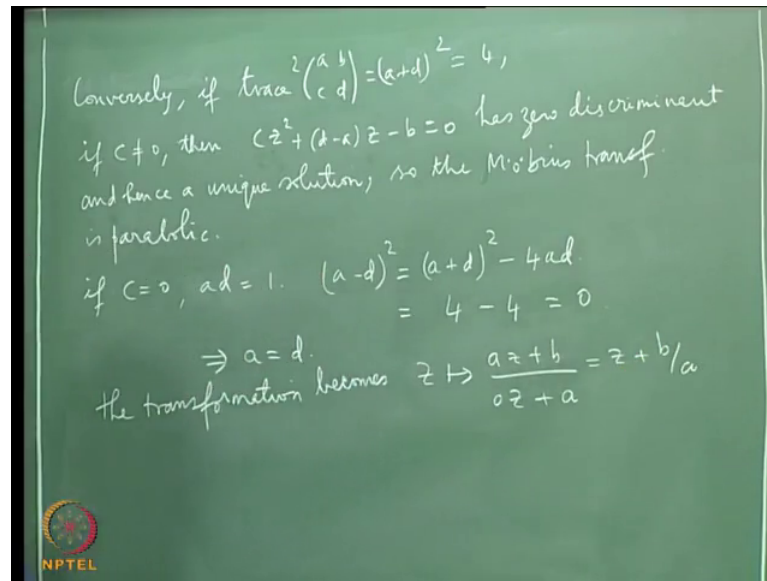 Conversely, if trace² (a b c d) = (a+d)² = 4,
if c ≠ 0, then cz² + (d-a)z - b = 0 has zero discriminant
and hence a unique solution, so the Möbius transf.
is parabolic.
if c = 0, ad = 1. (a-d)² = (a+d)² - 4ad
= 4 - 4 = 0.
⇒ a = d.
the transformation becomes z ↦ (az + b)/(0z + a) = z + b/a
NPTEL